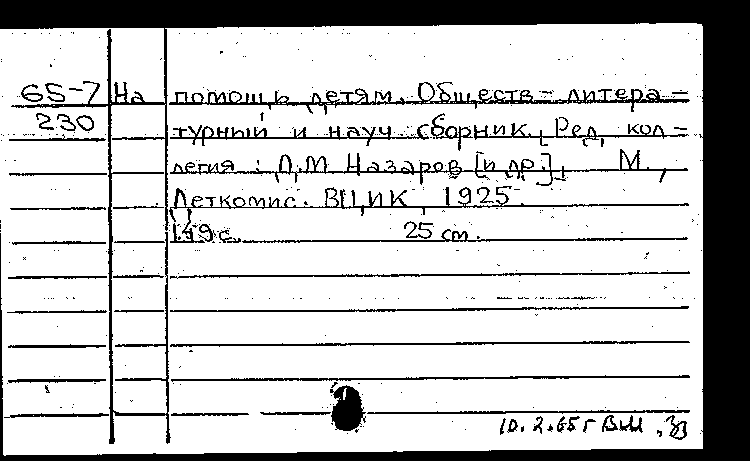 65-7 На помощь детям. Обществ- литера-
230 турный и науч сборник. [Ред. кол-
легия: Л.М Назаров [и др.]. М.,
Деткомис. ВЦИК, 1925.
149 с. 25 cm.
10.2.65 г